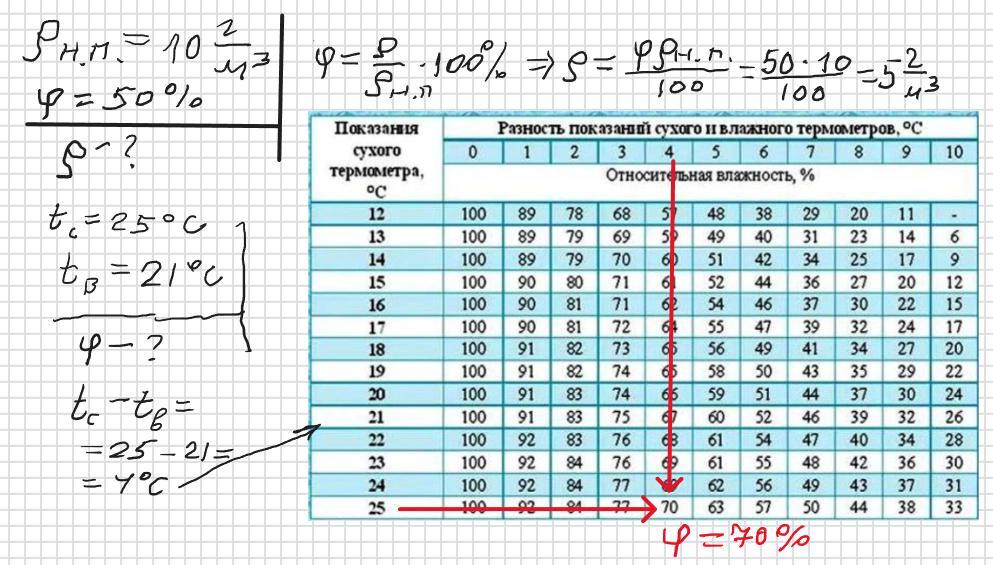 ρн.п. = 10 г/м³
φ = 50%
ρ - ?
φ = ρ/ρн.п · 100% ⇒ ρ = φρн.п./100 = 50 · 10/100 = 5 г/м³
tc = 25°C
tв = 21°C
φ - ?
tc - tв =
= 25 - 21 =
= 4°C
Показания сухого термометра, °C
Разность показаний сухого и влажного термометров, °C
0 1 2 3 4 5 6 7 8 9 10
Относительная влажность, %
12 100 89 78 68 57 48 38 29 20 11 -
13 100 89 79 69 59 49 40 31 23 14 6
14 100 89 79 70 60 51 42 34 25 17 9
15 100 90 80 71 61 52 44 36 27 20 12
16 100 90 81 71 62 54 46 37 30 22 15
17 100 90 81 72 64 55 47 39 32 24 17
18 100 91 82 73 65 56 49 41 34 27 20
19 100 91 82 74 65 58 50 43 35 29 22
20 100 91 83 74 66 59 51 44 37 30 24
21 100 91 83 75 67 60 52 46 39 32 26
22 100 92 83 76 68 61 54 47 40 34 28
23 100 92 84 76 69 61 55 48 42 36 30
24 100 92 84 77 69 62 56 49 43 37 31
25 100 92 84 77 70 63 57 50 44 38 33
φ = 70%